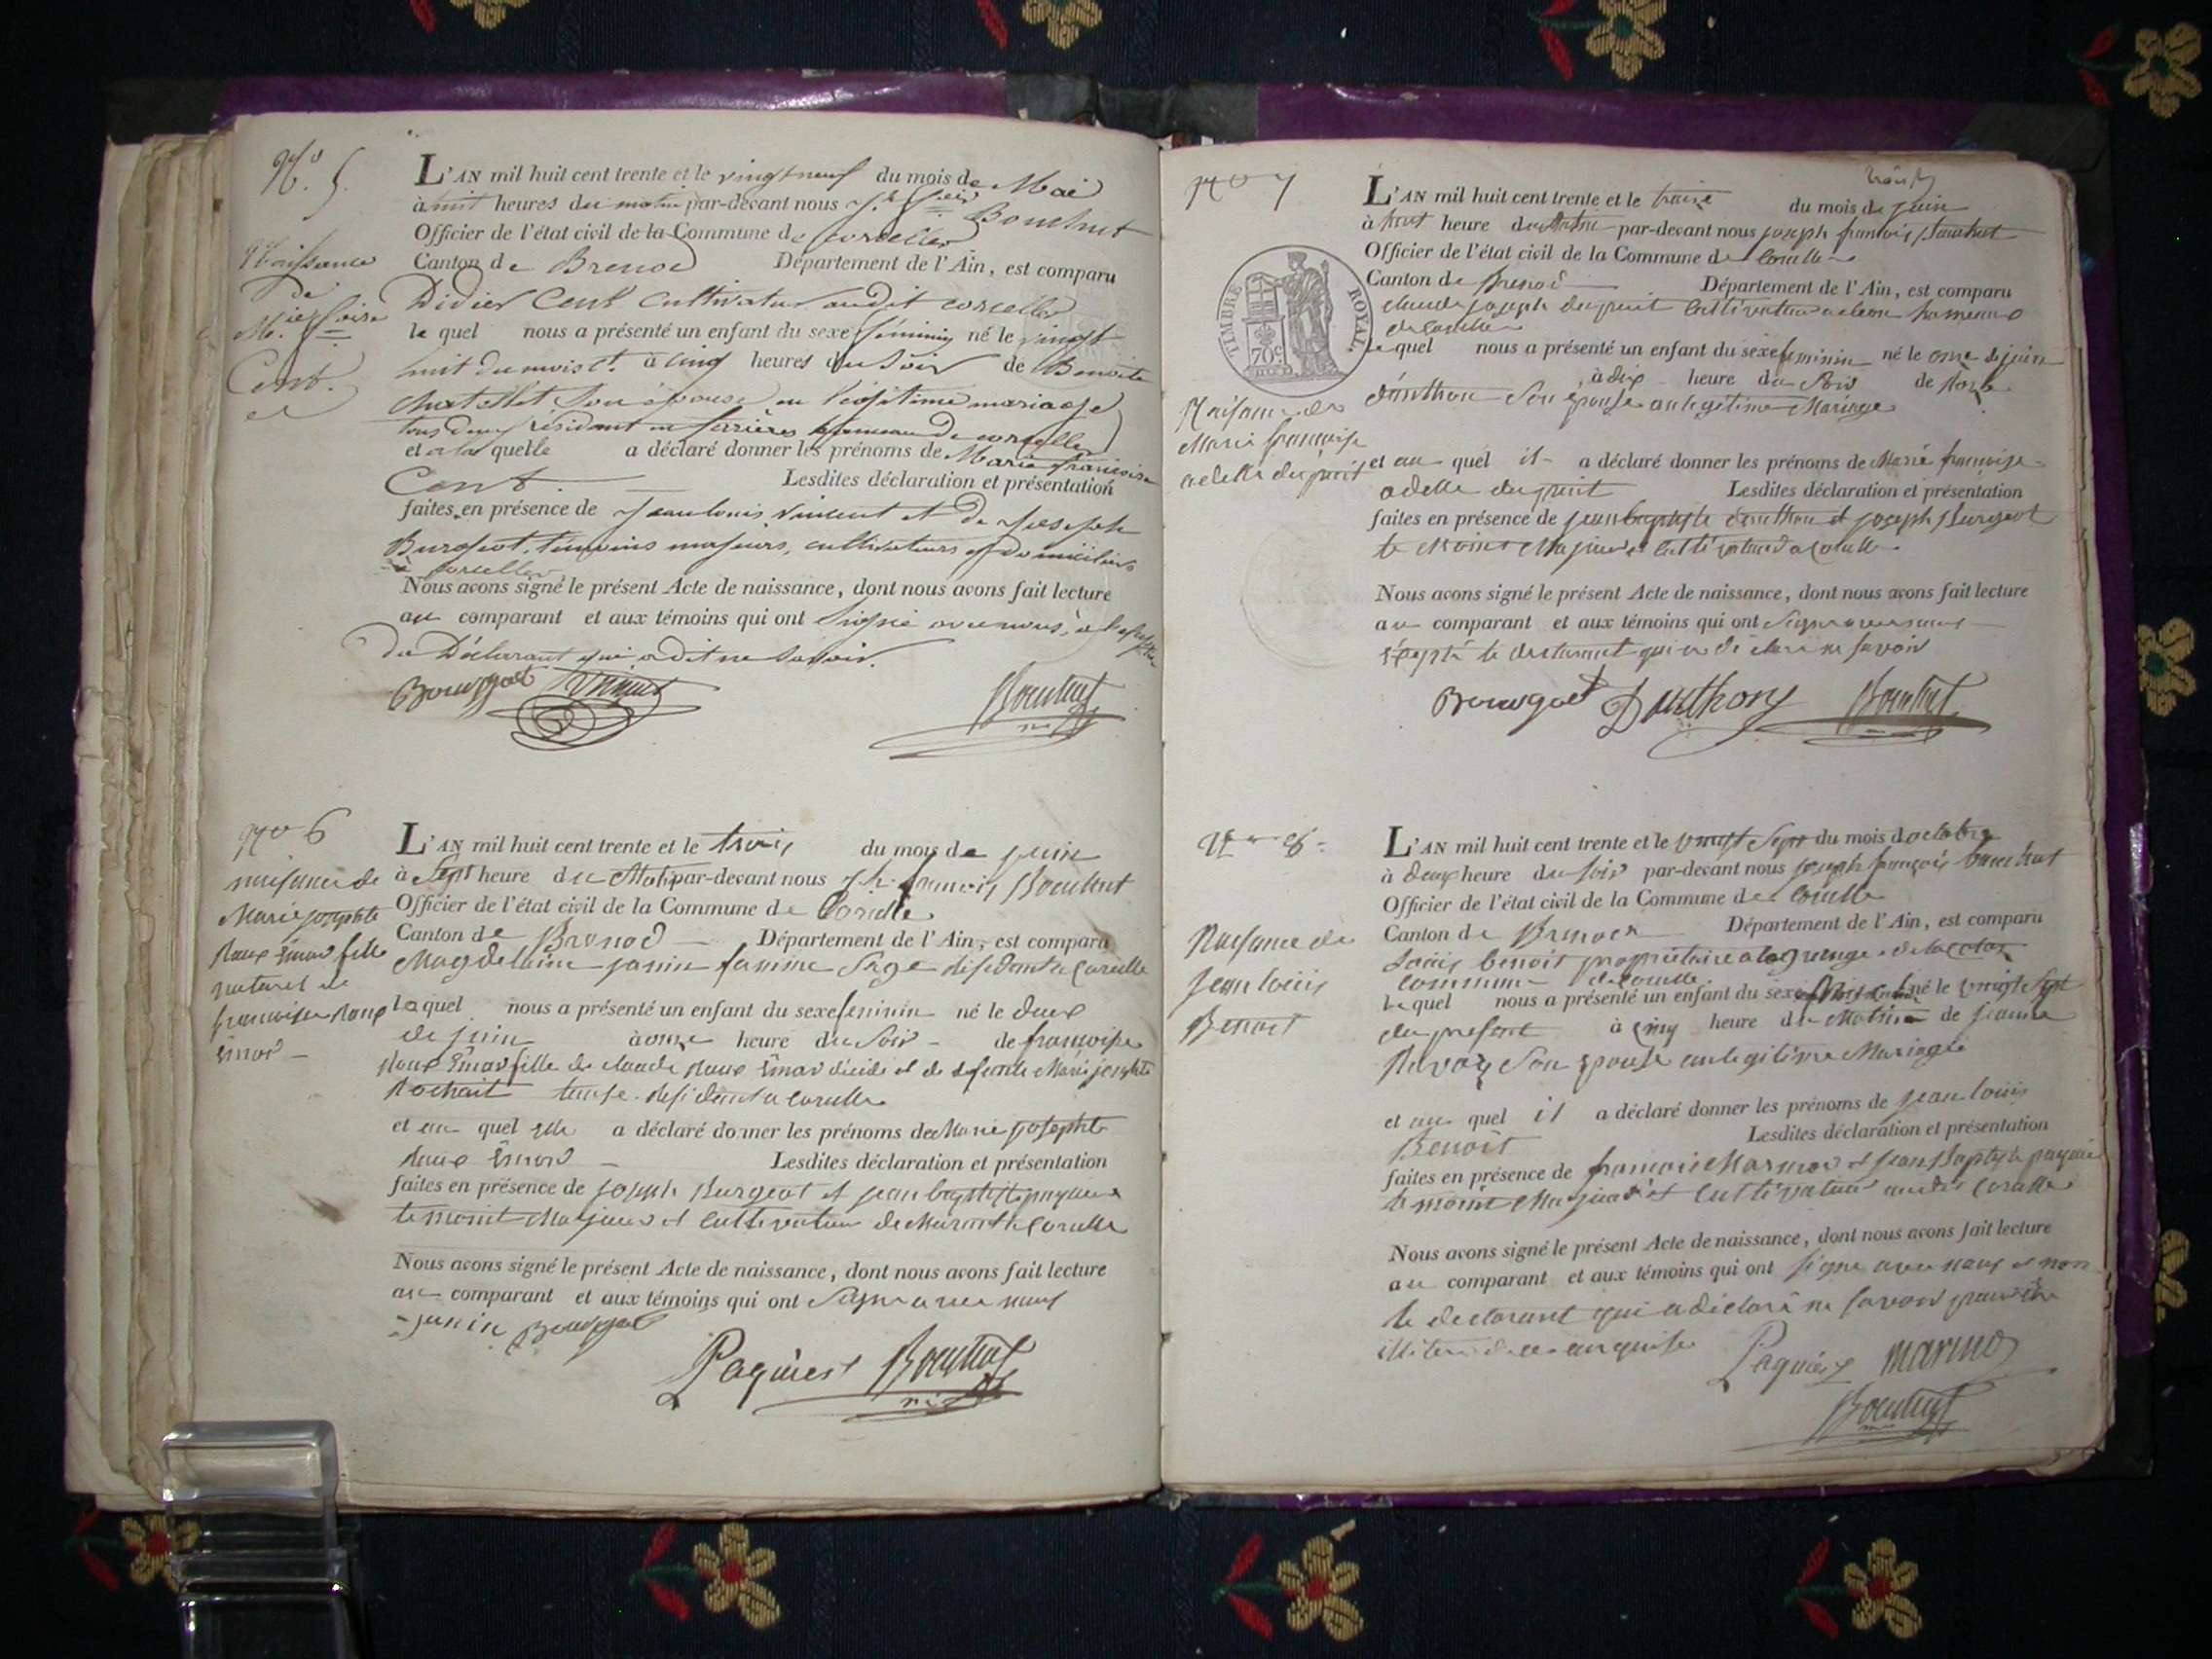 No. 5.
Naissance
de
M.ie f.çoise
Cent.
L'AN mil huit cent trente et le vingt neuf du mois de Mai
à huit heures du matin par-devant nous J.h f.çois Bouchut
Officier de l'état civil de la Commune de corcelles
Canton de Brenod Département de l'Ain, est comparu
Didier Cent Cultivateur audit corcelles
le quel nous a présenté un enfant du sexe féminin né le vingt
huit du mois ct. à cinq heures du Soir de Benoite
Son épouse en légitime mariage
tous deux résidant en ferrières hameau de corcelles
et a la quelle a déclaré donner les prénoms de Marie françoise
Cent. Lesdites déclaration et présentation
faites en présence de Jean louis Vincent et de Joseph
Burgeot, témoins majeurs, cultivateurs domiciliés
à corcelles
Nous avons signé le présent Acte de naissance, dont nous avons fait lecture
au comparant et aux témoins qui ont signé avec nous,
du Déclarant qui a dit ne savoir.
Bourgeot Bouchut
No 6
naisance de
Marie josephte
fille
naturel de
françoise
L'AN mil huit cent trente et le trois du mois de juin
à Sept heure du Matin par-devant nous J.h françois Bouchut
Officier de l'état civil de la Commune de Corcelle
Canton de Brenod Département de l'Ain, est comparu
Magdelaine janin famme Sage residante a Corcelle
laquel nous a présenté un enfant du sexe feminin né le deux
de juin à onze heure du Soir de françoise
fille de claude et de defunte Marie josephte
Rochait residant a Corcelle
et au quel elle a déclaré donner les prénoms de Marie josephte
Lesdites déclaration et présentation
faites en présence de joseph Burgeot et jean baptiste
temoint Majeur et Cultivateur a Corcelle
Nous avons signé le présent Acte de naissance, dont nous avons fait lecture
au comparant et aux témoins qui ont Signe avec nous
janin Bourgeot
Paquiest Bouchut
No 7
TIMBRE ROYAL.
70c.
Naisance de
Marie françoise
adelle dupuit
L'AN mil huit cent trente et le treize du mois de juin
à huit heure du Matin par-devant nous joseph françois Bouchut
Officier de l'état civil de la Commune de Corcelle
Canton de Brenod Département de l'Ain, est comparu
claude joseph dupuit Cultivateur hameau
de Corcelle
le quel nous a présenté un enfant du sexe feminin né le onze de juin
à dix heure du Soir de
Son epouse en legitime Mariage
et au quel il a déclaré donner les prénoms de Marie françoise
adelle dupuit Lesdites déclaration et présentation
faites en présence de jean baptiste douthon et joseph Burgeot
temoint Majeur et Cultivateur a Corcelle
Nous avons signé le présent Acte de naissance, dont nous avons fait lecture
au comparant et aux témoins qui ont Signe avec nous
le declarant qui a declaré ne savoir
Bourgeot Douthon Bouchut
No 8
Naisance de
jean louis
Benoit
L'AN mil huit cent trente et le vingt Sept du mois doctobre
à deux heure du soir par-devant nous joseph françois bouchut
Officier de l'état civil de la Commune de Corcelle
Canton de Brenod Département de l'Ain, est comparu
Louis benoit propriétaire a la grange de la
commune de Corcelle
le quel nous a présenté un enfant du sexe né le vingt Sept
du present à cinq heure du Matin de jeanne
Son epouse en legitime Mariage
et au quel il a déclaré donner les prénoms de jean louis
Benoit Lesdites déclaration et présentation
faites en présence de françois Marmod et jean Baptiste
temoint Majeur et Cultivateur Corcelle
Nous avons signé le présent Acte de naissance, dont nous avons fait lecture
au comparant et aux témoins qui ont signe avec nous et non
le declarant qui a déclaré ne savoir pour être
illitere de ce enquise
Paquiest Marmod
Bouchut